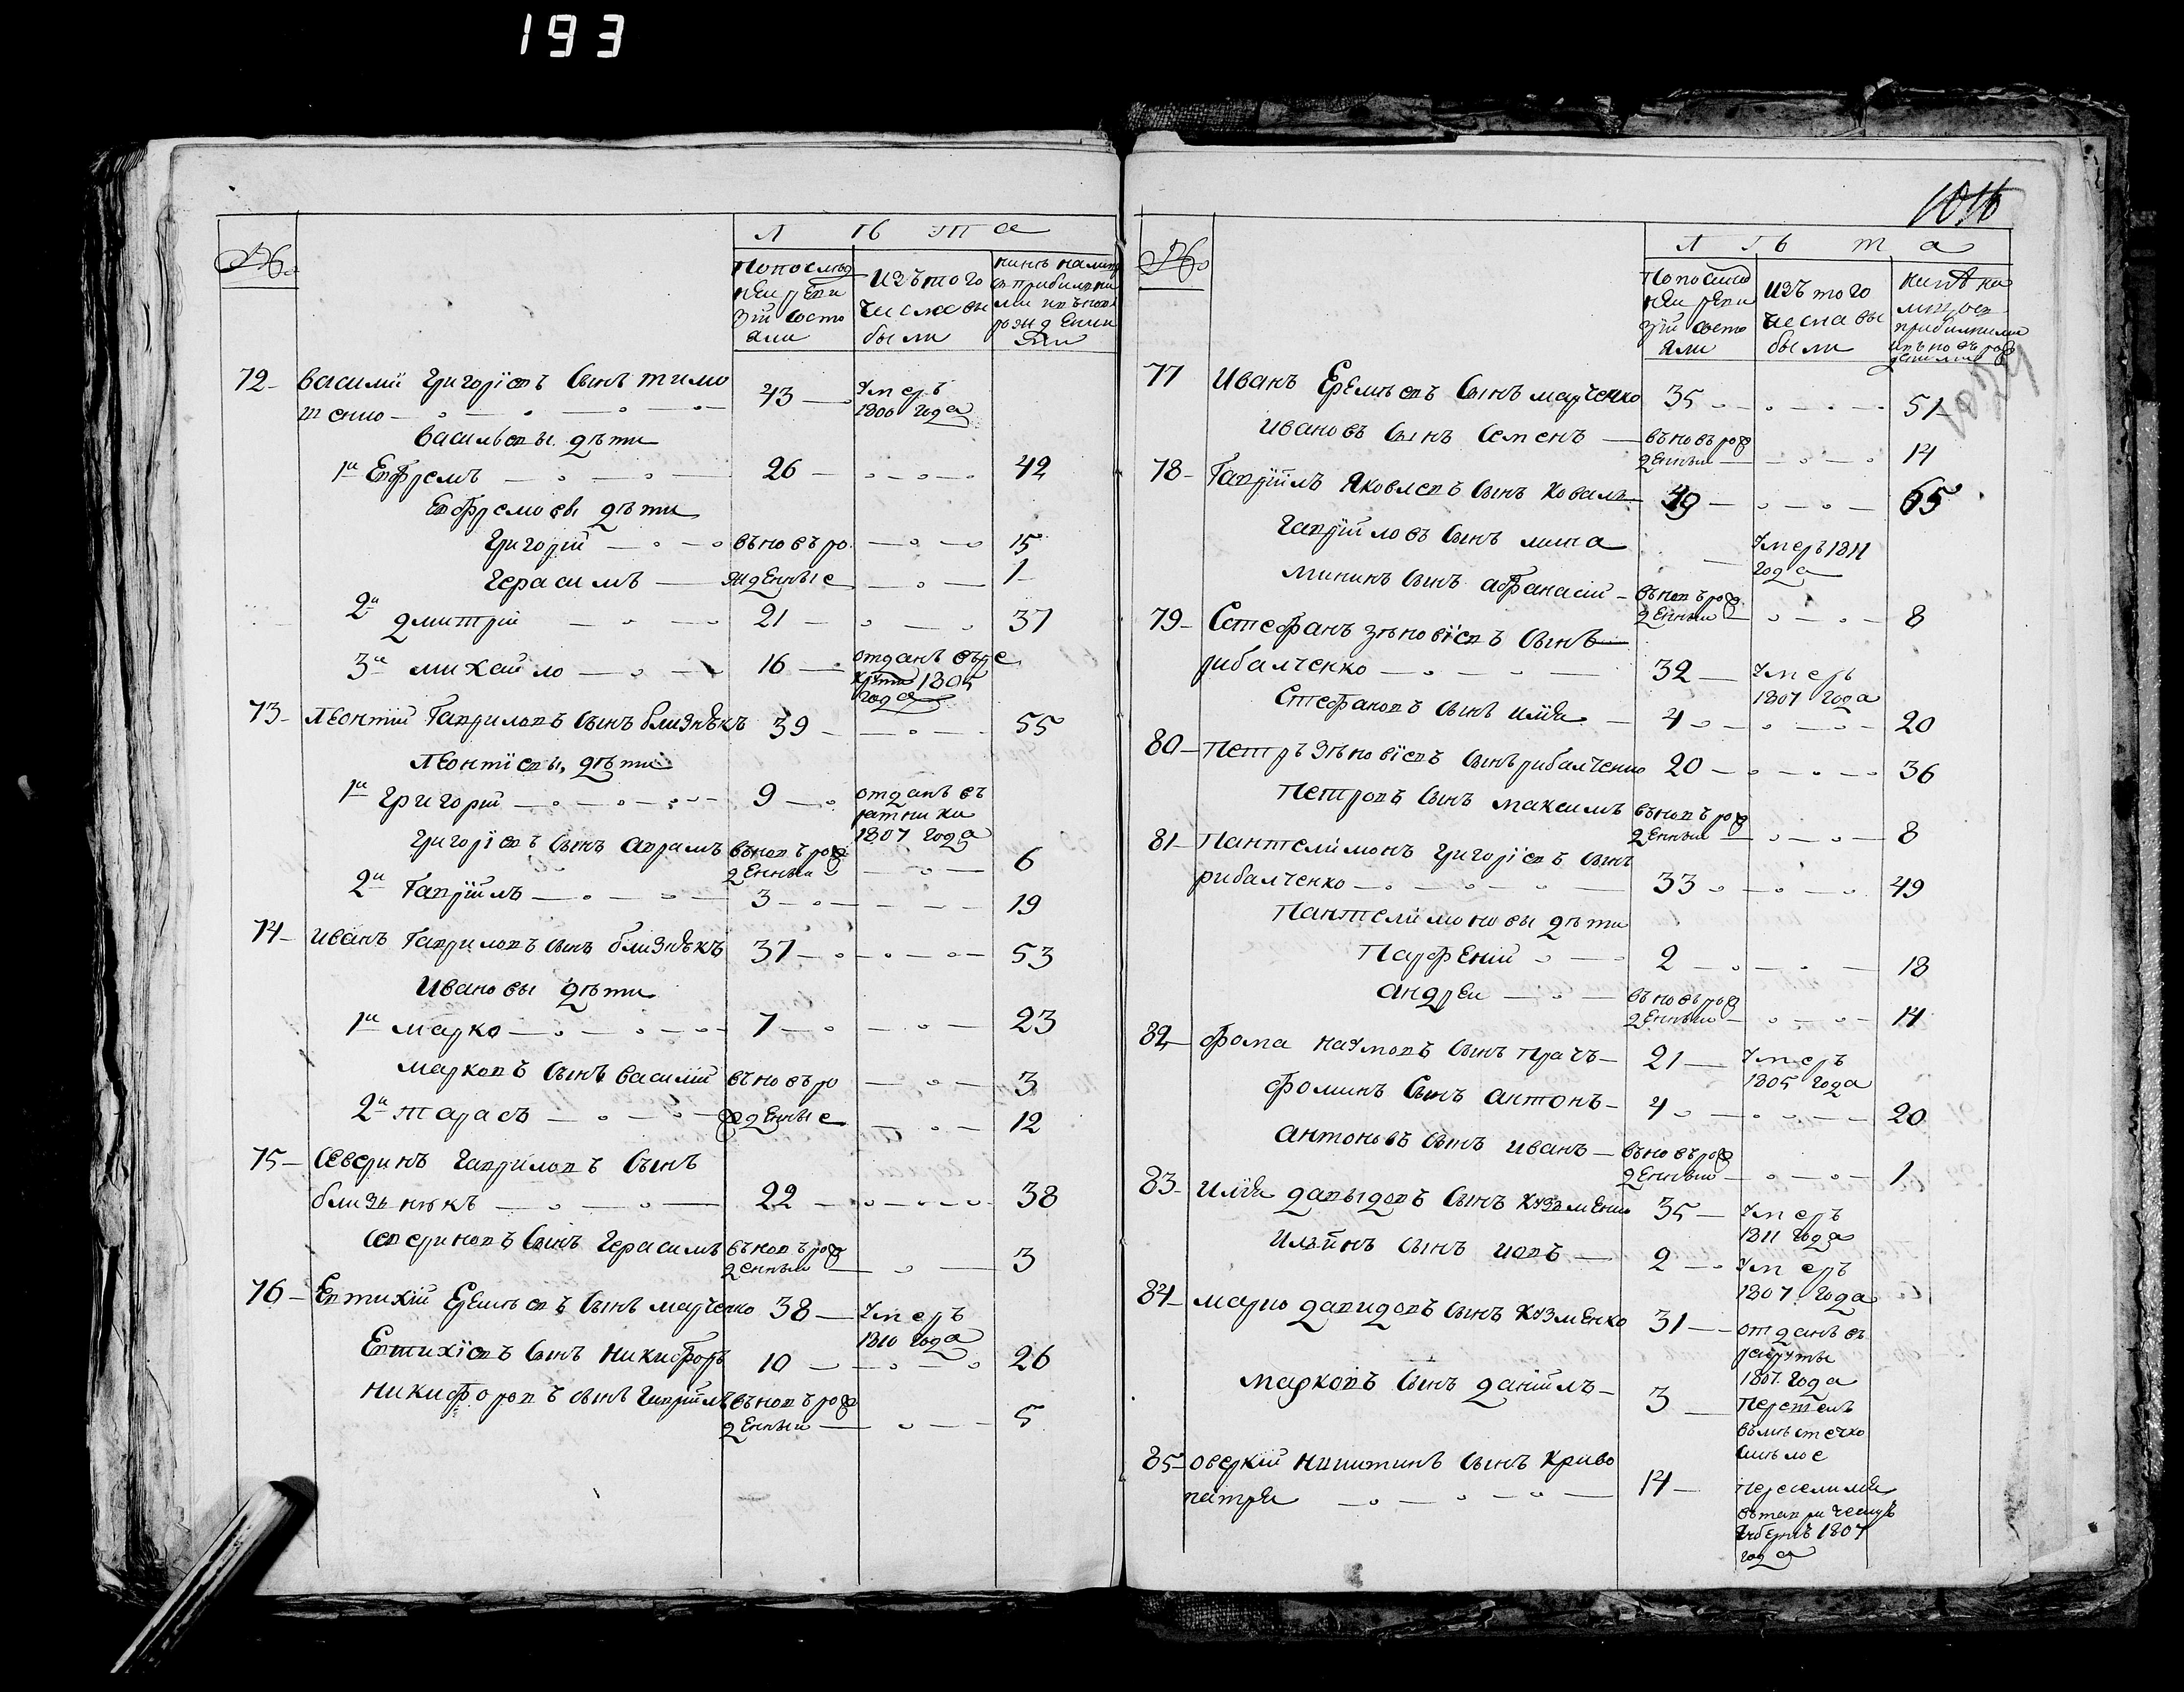 193
№
Л ѣ т а
По послѣд
ней реви
зіи состо
яли
Изъ того
числа вы
были
нинѣ налицо
съ прибилими
и въновь
рожденни
ми
72 Василій Григоріевъ Сынъ тимо 43 Умеръ
тенко 1800 года
Васильевы дѣти
1й Евфремъ 26 42
Евфремовы дѣти
Григорій въновъ ро 15
Герасимъ жденные 1
2й Дмитрій 21 37
3й михайло 16 отданъ въре
круты 1805
года
73 Леонтій Гавриловъ Сынъ близнѣкъ 39 55
Леонтіевы дѣти
1й Григорій 9 отданъ въ
ратники
1807 года
Григоріевъ Сынъ аврамъ въновъ рож
денный 6
2й Гавріилъ 3 19
74 Иванъ Гавриловъ Сынъ близнѣкъ 37 53
Ивановы дѣти
1й марко 7 23
марковъ Сынъ василій въновъ ро 3
2й тарасъ жденные 12
75 Северинъ Гавриловъ Сынъ
близьнѣкъ 22 38
Севериновъ Сынъ Герасимъ въновъ рож
денный 3
76 Евтихій Еремѣевъ Сынъ марченко 38 Умеръ
1810 года
Евтихіевъ Сынъ Никифоръ 10 26
Никифоровъ Сынъ Гавріилъ въновъ рож
денный 5
1016
№
Л ѣ т а
По послѣд
ней реви
зіи состо
яли
Изъ того
числа вы
были
нинѣ на
лицо съ
прибилими
и въновъ рож
денними
77 Иванъ Еремѣевъ Сынъ марченко 35 51
Ивановъ Сынъ Семенъ въновъ рож
денный 14
78 Гавріилъ Яковлевъ Сынъ Коваль 49 65
Гавріиловъ Сынъ мина Умеръ 1811
года
Мининъ Сынъ афанасій въновъ рож
денный 8
79 Стефанъ зѣновіевъ Сынъ
рибалченко 32 Умеръ
1807 года
Стефановъ Сынъ илія 4 20
80 Петръ Зѣновіевъ Сынъ рибалченко 20 36
Петровъ Сынъ максимъ въновъ рож
денный 8
81 Пантелимонъ григоріевъ Сынъ
рибалченко 33 49
Пантелимоновы дѣти
Парфеній 2 18
андреи въновъ рож
денный 14
82 Фома наумовъ Сынъ прачъ 21 Умеръ
1805 года
Фоминъ Сынъ антонъ 4 20
антоновъ Сынъ иванъ въновъ рож
денный 1
83 илія давыдовъ Сынъ Кузменко 35 Умеръ
1811 года
Ильинъ Сынъ иовъ 2 Умеръ
1807 года
84 марко давидовъ Сынъ Кузменко 31 отданъ въ
рекруты
1807 года
марковъ Сынъ даніилъ 3 Перешелъ
въмѣстечко
Смѣлое
85 оверкій Никитинъ Сынъ Криво 14 переселился
патря втаврическую
губернѣ 1807
года